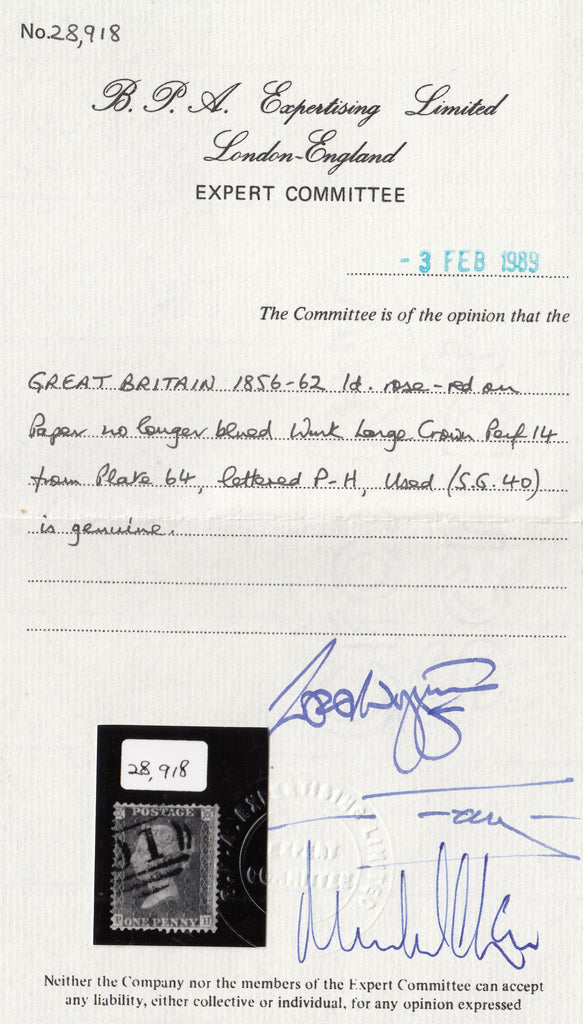 No. 28,918
B. P. A. Expertising Limited
London-England
EXPERT COMMITTEE
- 3 FEB 1989
The Committee is of the opinion that the
GREAT BRITAIN 1856-62 1d. rose-red on
Paper no longer blued Wmk Large Crown Perf 14
from Plate 64, lettered P-H, Used (S.G. 40)
is genuine.
28,918
POSTAGE
P ONE PENNY H
COMMITTEE
Neither the Company nor the members of the Expert Committee can accept
any liability, either collective or individual, for any opinion expressed